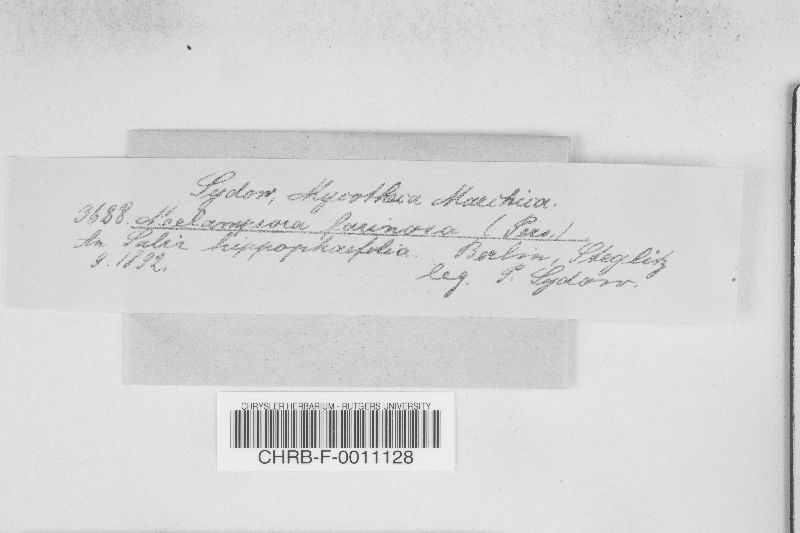 Sydow, Mycotheca Marchica.
3688. Melampsora farinosa (Pers.)
An Salix hippophaefolia. Berlin, Steglitz
9. 1892.
leg. P. Sydow.
CHRYSLER HERBARIUM - RUTGERS UNIVERSITY
CHRB-F-0011128